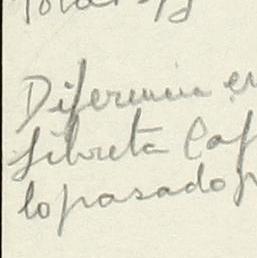 Diferencia en
libreta Caf
lo pasado p